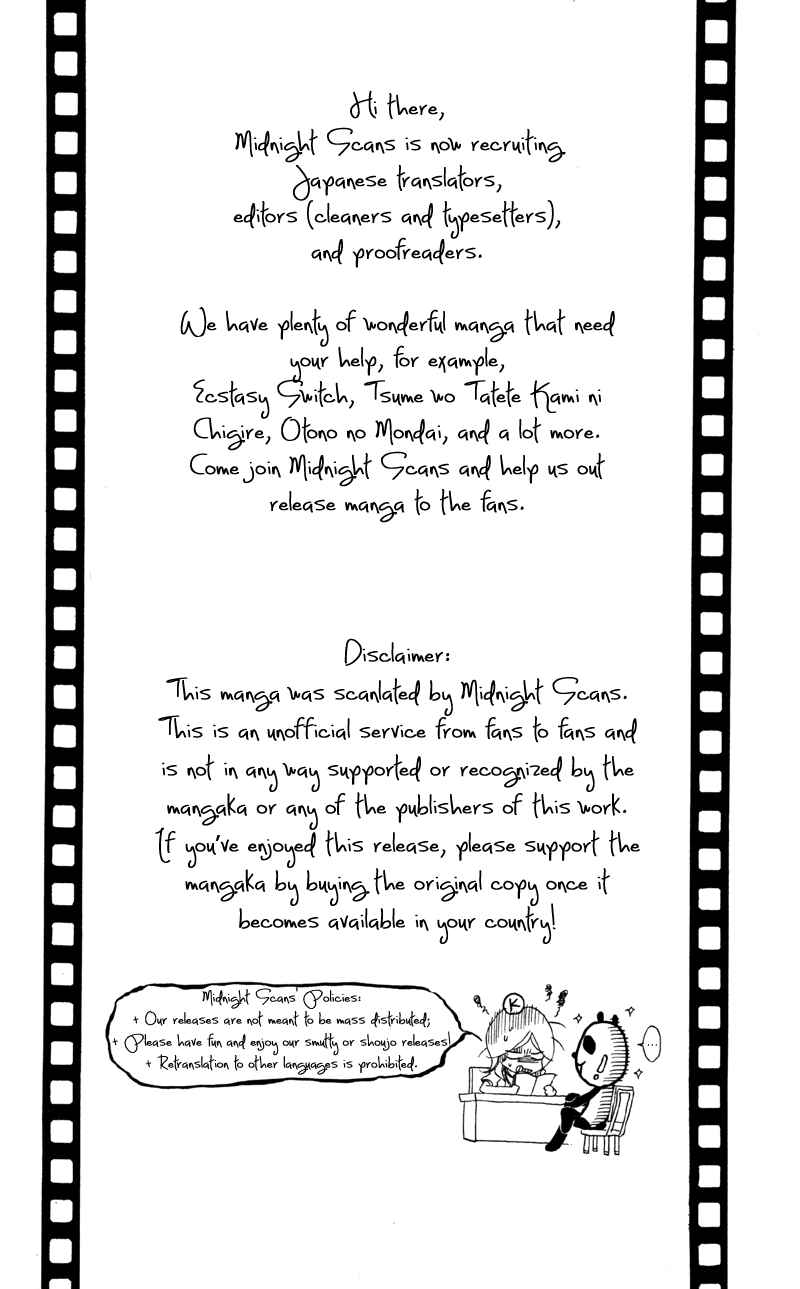 Hi there,
Midnight Scans is now recruiting
Japanese translators,
editors (cleaners and typesetters),
and proofreaders.
We have plenty of wonderful manga that need
your help, for example,
Ecstasy Switch, Tsume wo Tatete Kami ni
Chigire, Otono no Mondai, and a lot more.
Come join Midnight Scans and help us out
release manga to the fans.
Disclaimer:
This manga was scanlated by Midnight Scans.
This is an unofficial service from fans to fans and
is not in any way supported or recognized by the
mangaka or any of the publishers of this work.
If you've enjoyed this release, please support the
mangaka by buying the original copy once it
becomes available in your country!
Midnight Scans' Policies:
+ Our releases are not meant to be mass distributed;
+ Please have fun and enjoy our smutty or shoujo releases!
+ Retranslation to other languages is prohibited.
K
...